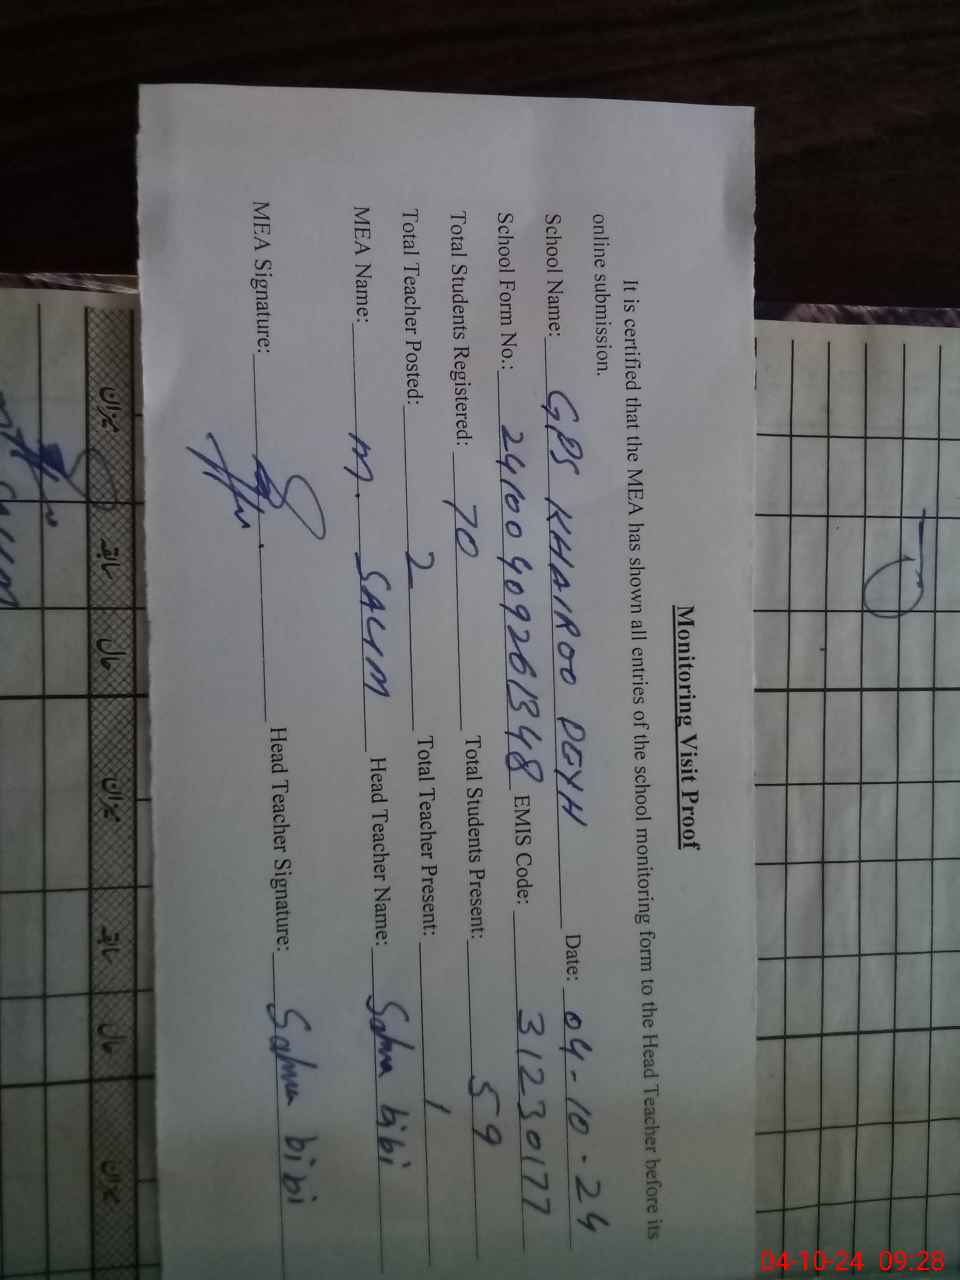 Monitoring Visit Proof
It is certified that the MEA has shown all entries of the school monitoring form to the Head Teacher before its
online submission.
School Name: GPS KHAIROO DEYH Date: 04-10-24
School Form No.: 24100409261348 EMIS Code: 31230177
Total Students Registered: 70 Total Students Present: 59
Total Teacher Posted: 2 Total Teacher Present: 1
MEA Name: M. SALIM Head Teacher Name: Salma bibi
MEA Signature: Head Teacher Signature: Salma bibi
میزان سابقہ حال میزان سابقہ حال میزان
04-10-24 09:28